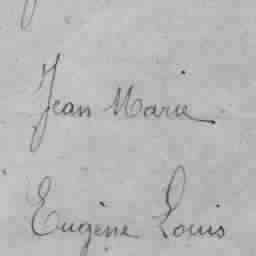 Jean Marie
Eugène Louis